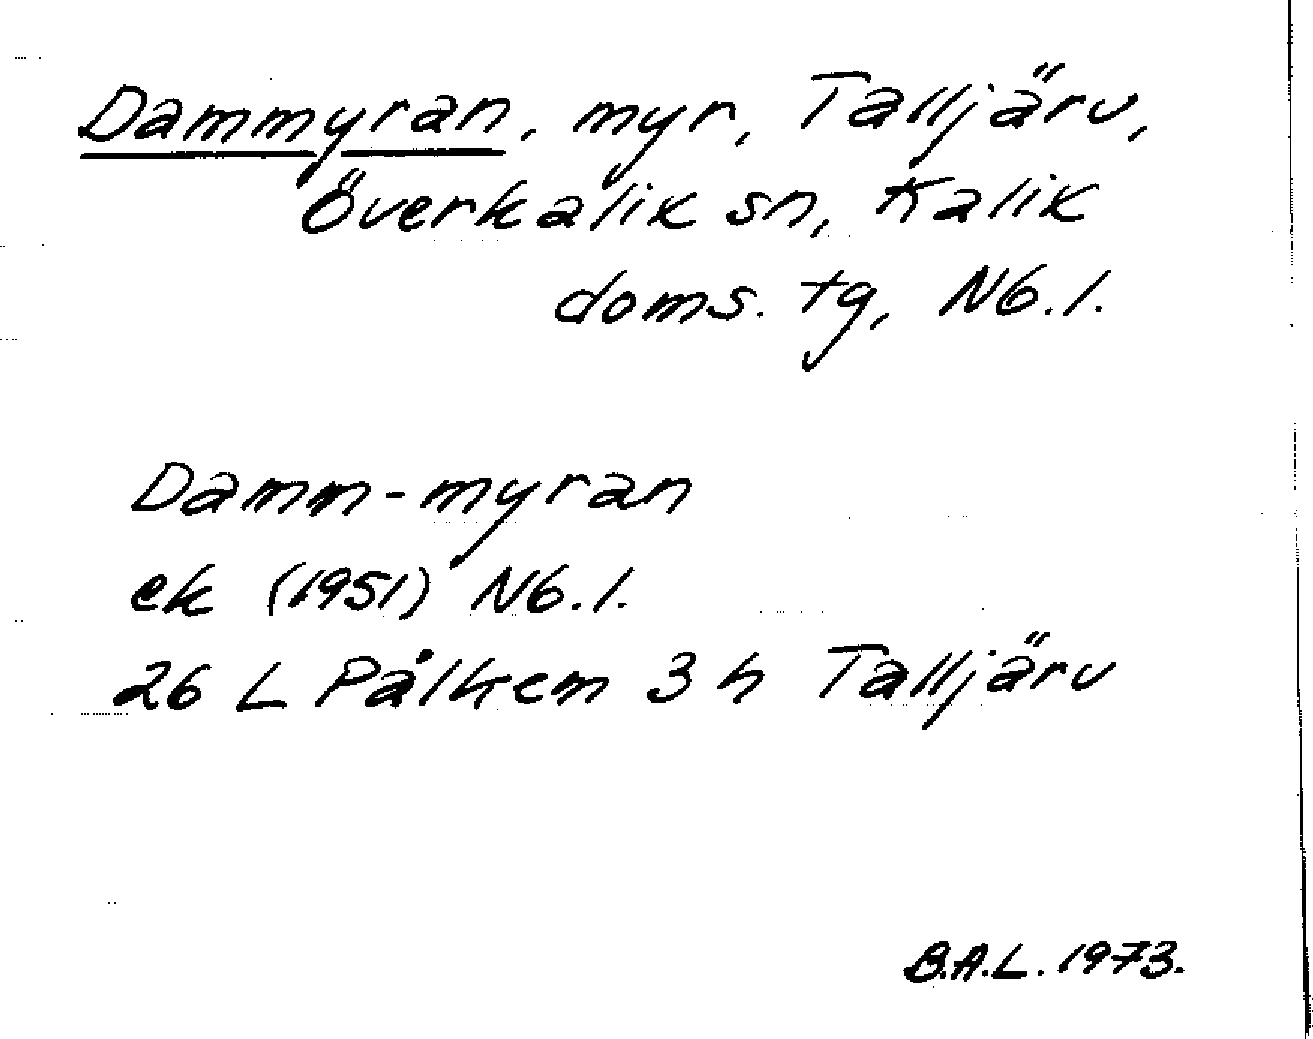 Dammyran, myr, Talljärv,
Överkalix sn, Kalix
doms. tg, Nb. l.
Damm-myran
ek (1951) Nb. l.
26 L Pålkem 3 h Talljärv
B.A.L. 1973.